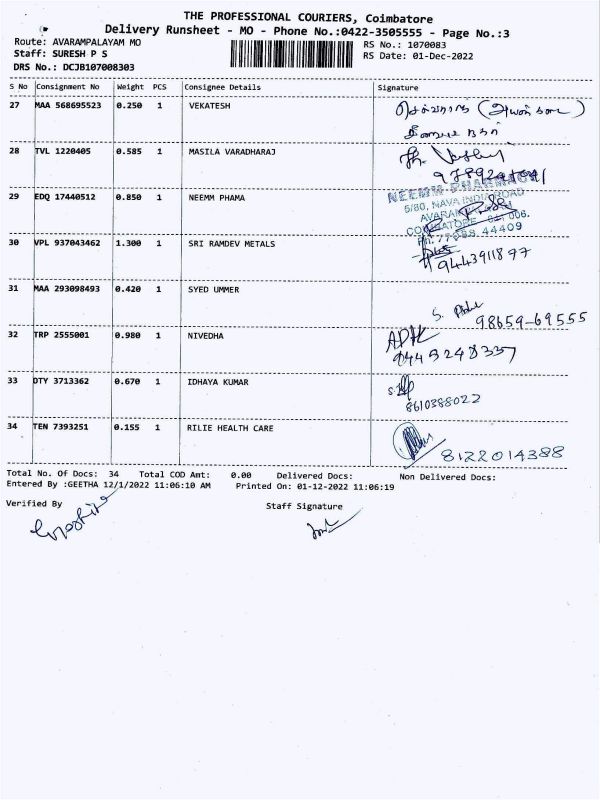 THE PROFESSIONAL COURIERS, Coimbatore
Delivery Runsheet - MO - Phone No.:0422-3505555 - Page No.:3
Route: AVARAMPALAYAM MO
RS No.: 1070083
Staff: SURESH P S
RS Date: 01-Dec-2022
DRS No.: DCJB107008303
S No Consignment No Weight PCS Consignee Details Signature
27 MAA 568695523 0.250 1 VEKATESH
28 TVL 1220405 0.585 1 MASILA VARADHARAJ
29 EDQ 17440512 0.850 1 NEEMM PHAMA
NEEMM PHARMACY
5/80, NAVA INDIA ROAD
30 VPL 937043462 1.300 1 SRI RAMDEV METALS
9443911897
31 MAA 293098493 0.420 1 SYED UMMER
98659-69555
32 TRP 2555001 0.980 1 NIVEDHA
9443248337
33 DTY 3713362 0.670 1 IDHAYA KUMAR
8610388022
34 TEN 7393251 0.155 1 RILIE HEALTH CARE
8122014388
Total No. Of Docs: 34 Total COD Amt: 0.00 Delivered Docs: Non Delivered Docs:
Entered By :GEETHA 12/1/2022 11:06:10 AM Printed On: 01-12-2022 11:06:19
Verified By Staff Signature